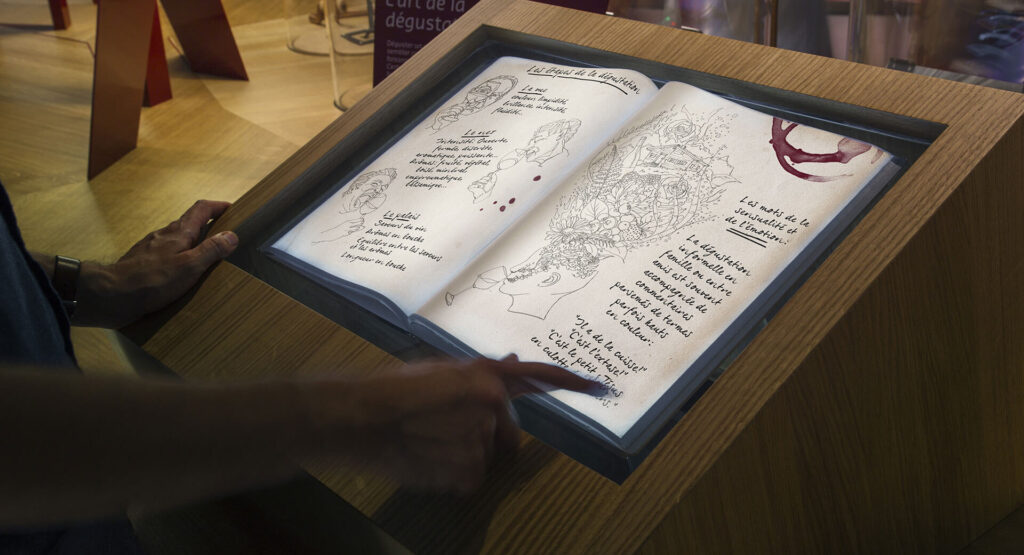 L'art de la
dégusta
Déguster un
Les étapes de la dégustation
La vue
couleur limpidité
brillance intensité
fluidité...
Le nez
Intensité. Ouverte
fermée discrète
aromatique puissante...
Arômes fruité végétal
boisé minéral
empyreumatique
balsamique...
Le palais
Saveurs du vin
Arômes en bouche
Equilibre entre les saveurs
et les arômes
Longueur en bouche
Les mots de la
sensualité et
de l'émotion :
La dégustation
informelle en
famille ou entre
amis est souvent
accompagnée de
commentaires
parsemés de termes
parfois hauts
en couleur :
"Il a de la cuisse!"
"C'est l'extase!"
"C'est le petit Jésus
en culotte